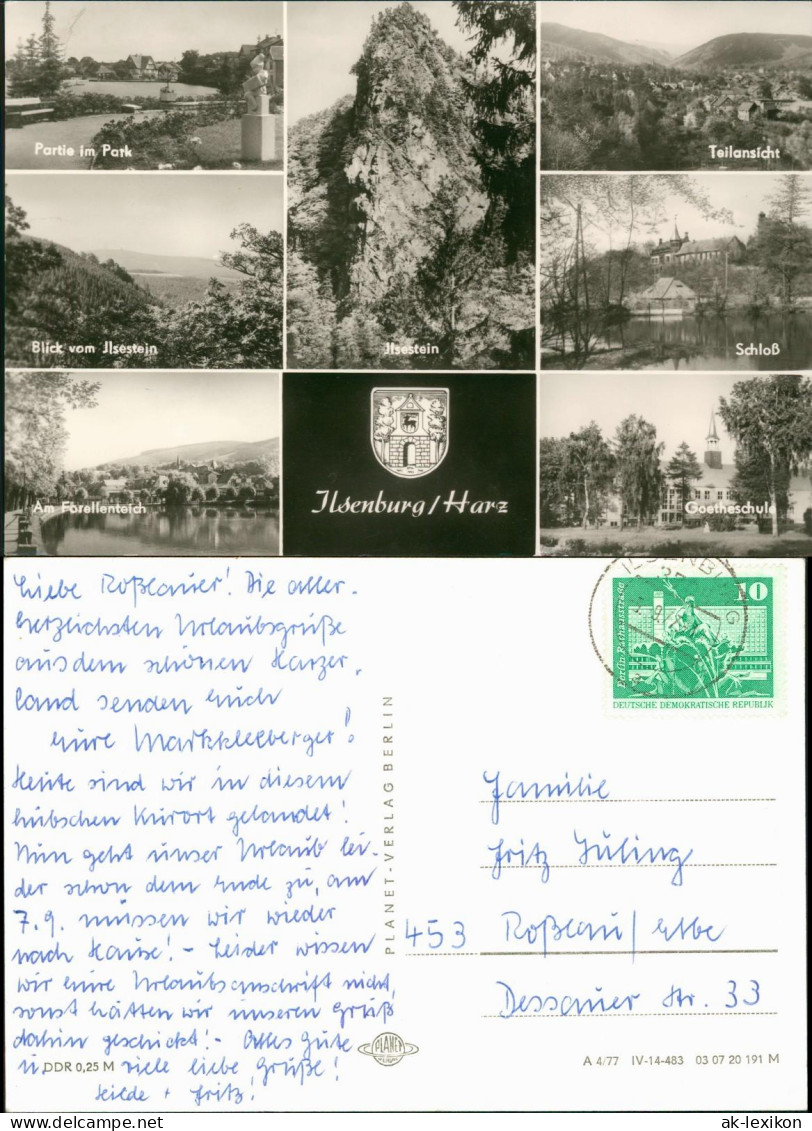 Partie im Park
Teilansicht
Blick vom Jlsestein
Jlsestein
Schloß
Am Forellenteich
Jlsenburg/Harz
Goetheschule
Liebe Roßlauer! Die aller-
herzlichsten Urlaubsgrüße
aus dem schönen Harzer-
land senden Euch
Eure Markkleeberger!
Heute sind wir in diesem
hübschen Kurort gelandet!
Nun geht unser Urlaub lei-
der schon dem Ende zu, am
7.9. müssen wir wieder
nach Hause! - Leider wissen
wir eure Urlaubsanschrift nicht,
sonst hätten wir unseren Gruß
dahin geschickt! - Alles Gute
u. viele liebe Grüße!
Hilde + Fritz!
DDR 0,25 M
PLANET-VERLAG BERLIN
PLANET
ILSENBURG
10
Berlin-Rathausstraße
DEUTSCHE DEMOKRATISCHE REPUBLIK
Familie
Fritz Jüling
453 Roßlau/Elbe
Dessauer Str. 33
A 4/77 IV-14-483 03 07 20 191 M
www.delcampe.net
ak-lexikon